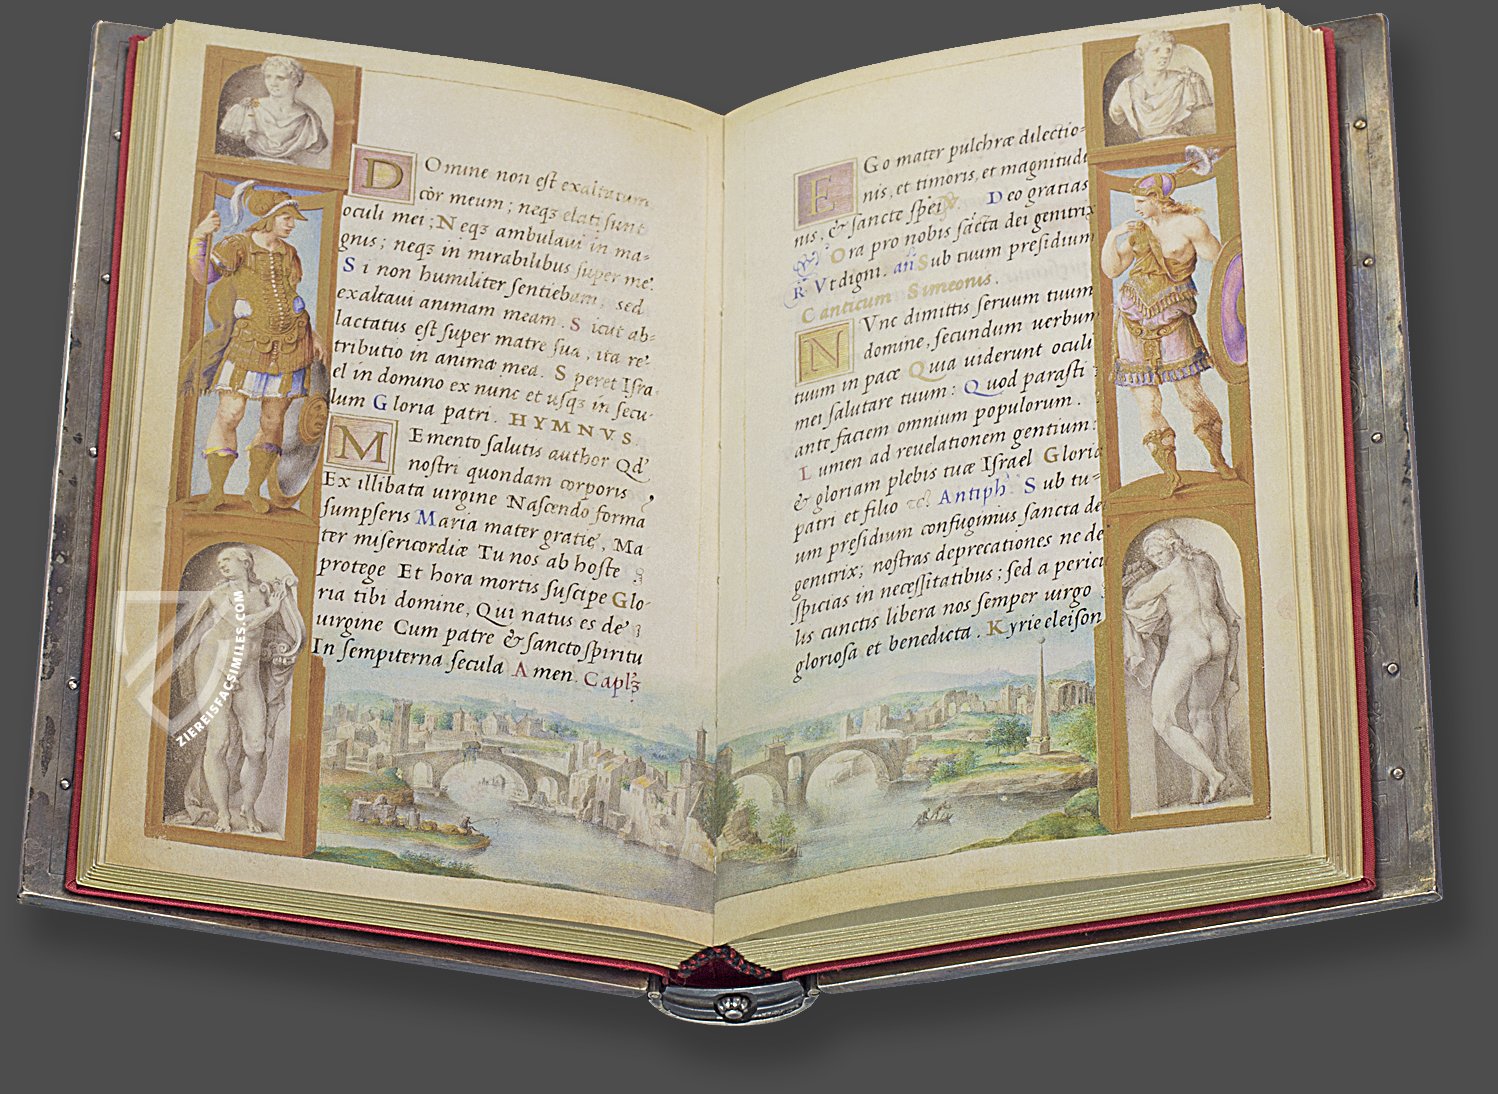 DOmine non est exaltatum
còr meum; neqȝ elati sunt
oculi mei; Neqȝ ambulaui in ma-
gnis; neqȝ in mirabilibus super me.
Si non humiliter sentiebam, sed
exaltaui animam meam. Sicut ab-
lactatus est super matre sua, ita re-
tributio in anima mea. Speret Isra-
el in domino ex nunc et usqȝ in secu-
lum Gloria patri. HYMNVS.
MEmento salutis author Qd'
nostri quondam corporis,
Ex illibata uirgine Nascendo forma
sumpseris Maria mater gratię, Ma
ter misericordiæ Tu nos ab hoste
protege Et hora mortis suscipe Glo-
ria tibi domine, Qui natus es de
uirgine Cum patre & sancto spiritu
In sempiterna secula Amen. Caplȝ
EGo mater pulchræ dilectio-
nis, et timoris, et magnitudi
nis, & sancte spei V. Deo gratias
Ora pro nobis sācta dei genitrix
R. Vt digni. añ Sub tuum presidium
Canticum Simeonis.
NVnc dimittis seruum tuum
domine, secundum uerbum
tuum in pace Quia uiderunt oculi
mei salutare tuum: Quod parasti
ante faciem omnium populorum.
Lumen ad reuelationem gentium:
& gloriam plebis tuæ Israel Gloria
patri et filio Antiph. Sub tu-
um presidium confugimus sancta dei
genitrix; nostras deprecationes ne de
spicias in necessitatibus; sed a pericu
lis cunctis libera nos semper uirgo
gloriosa et benedicta. Kyrie eleison
ZIEREISFACSIMILES.COM